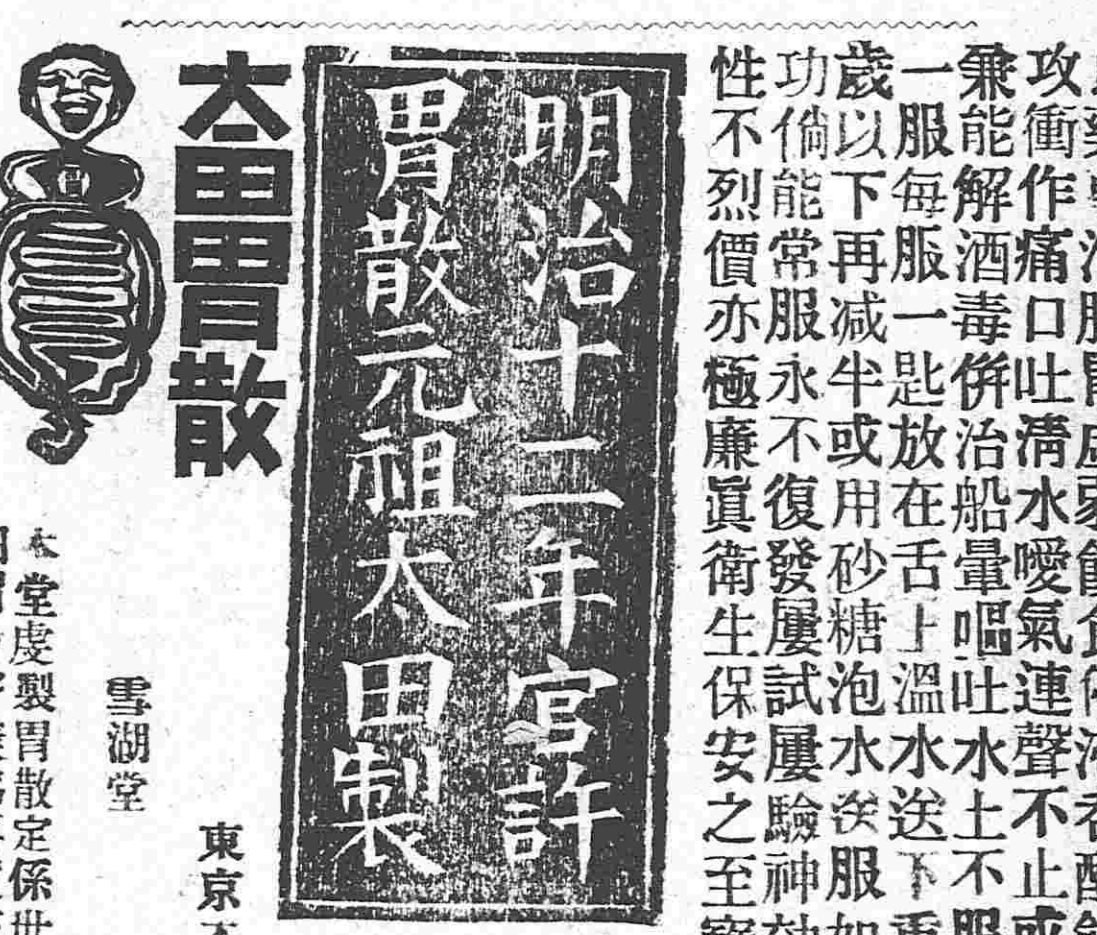 攻衝作痛口吐清水噯氣連聲不止或
兼能解酒毒併治船暈嘔吐水土不服
一服每服一匙放在舌上溫水送下重
歲以下再減半或用砂糖泡水送服如
功倘能常服永不復發屢試屢驗神効
性不烈價亦極廉眞衛生保安之至寶
明治十二年官許
胃散元祖太田製
太田胃散
東京
雪湖堂
本堂虔製胃散定係世